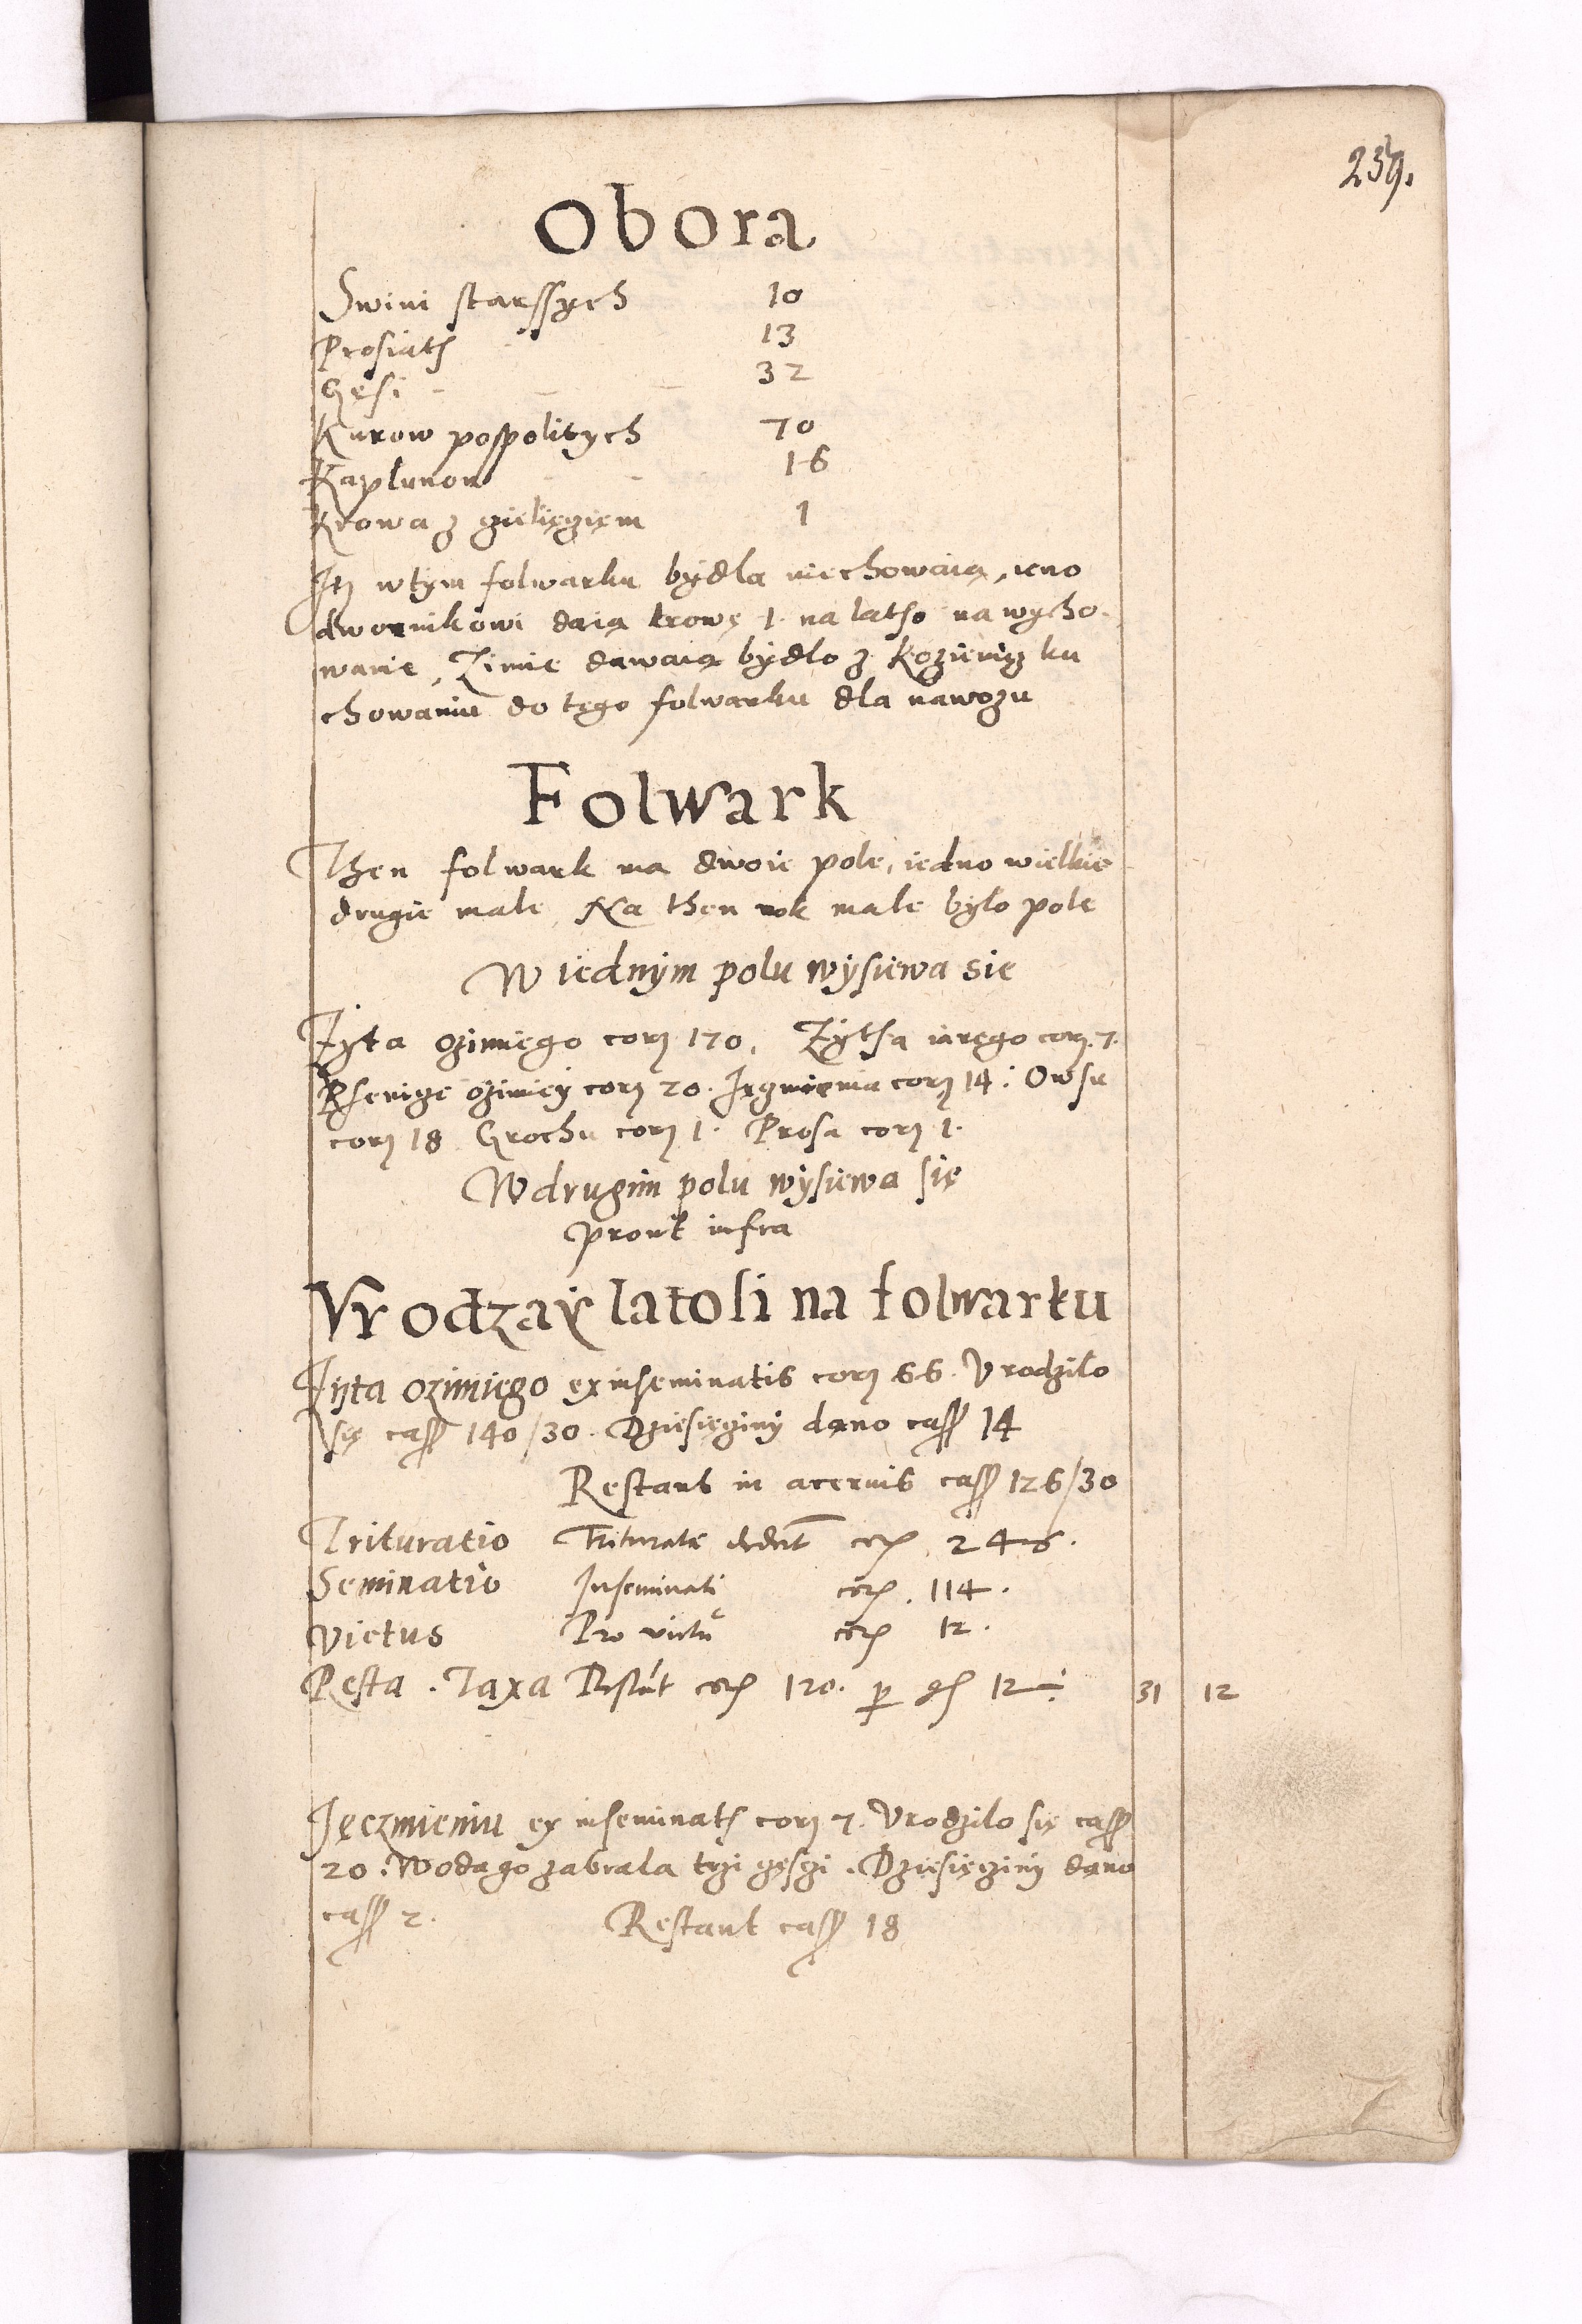 239.
Obora
Swini starssych 10
Prosiath 13
Gęsi 32
Kurow pospolitych 70
Kaplunow 16
Krowa z cielięciem 1
Iż wtym folwarku bydla niechowaią, ieno
dwornikowi daią krowę 1. na latho na wycho-
wanie, Zimie dawaią bydlo z Kozienicz ku
chowaniu do tego folwarku dla nawozu
Folwark
Then folwark ma dwoie pole, iedno wielkie
drugie male, Na then rok male bylo pole
W iednym polu wysiewa sie
Zyta ozimiego corz 170. Zytha iarego corz 7.
Psenice ozimey corz 20. Jeczmienia corz 14 : Owsa
corz 18 Grochu corz 1. Prosa corz 1.
W drugim polu wysiewa się
prout infra
Vrodzay latosi na folwarku
Zyta ozimiego ex inseminatis corz 66. Vrodzilo
się cass 140/30. Dziesięciny dano cass 14
Restant in acervis cass 126/30
Trituratio Triturate dederunt cor 246.
Seminatio Inseminati cor. 114.
Victus Pro victu cor 12.
Resta. Taxa Restant cor 120. per gr 12 ÷ 31 12
Jęczmieniu ex inseminatis corz 7. Vrodzilo się cass
20. Woda go zabrala trzi częsczi. Dziesięciny dano
cass 2. Restant cass 18